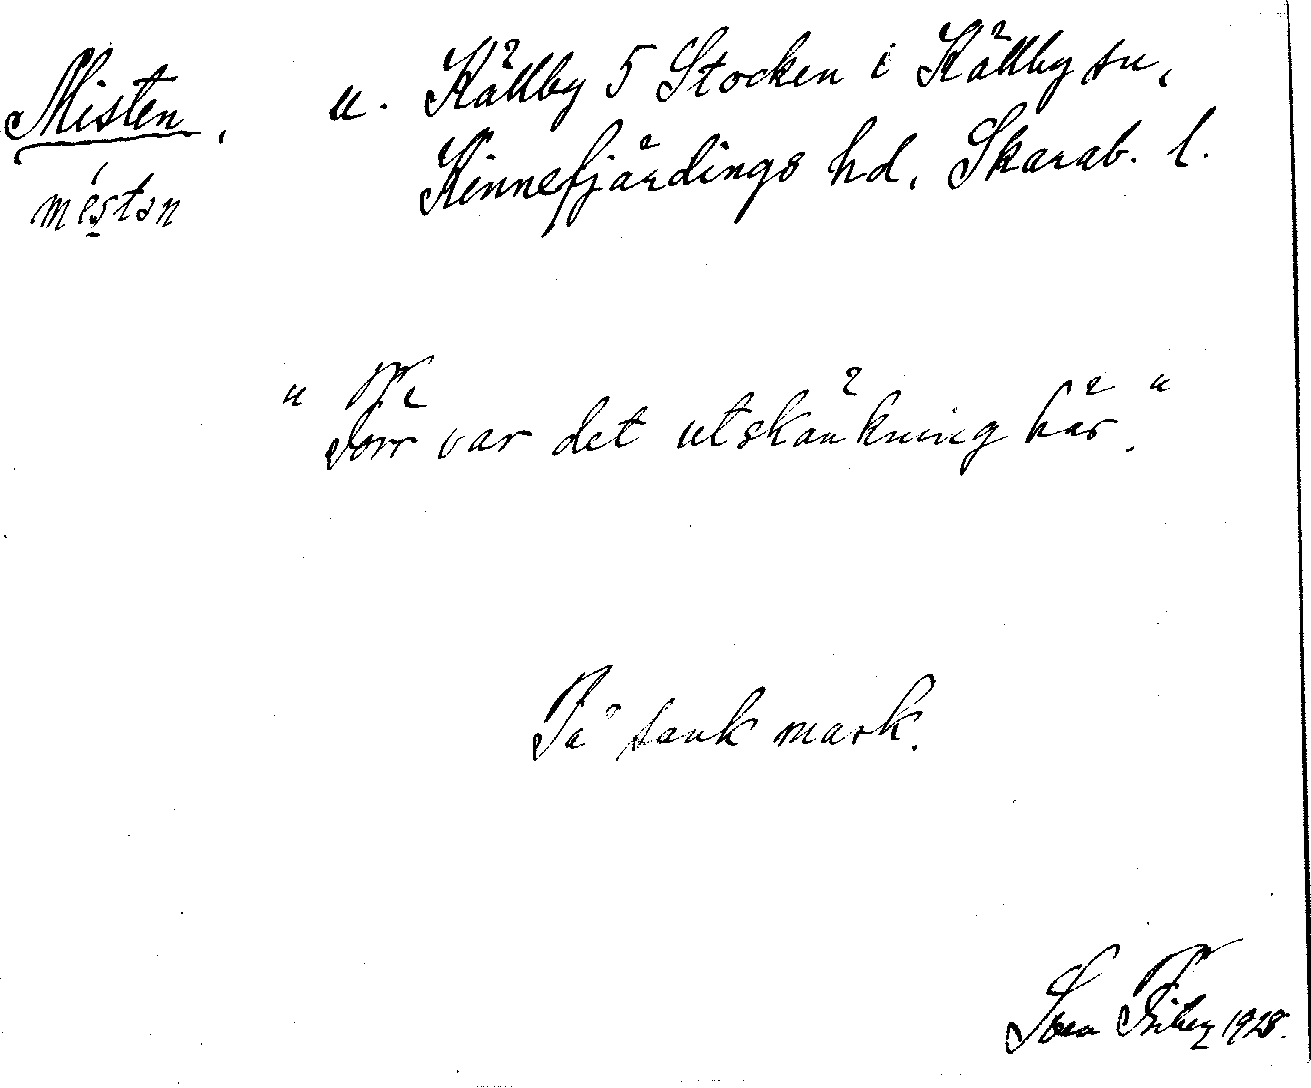 Misten, u. Källby 5 Stocken i Källby sn,
mėstən Kinnefjärdings hd, Skarab. l.
"Förr var det utskänkning här."
På sank mark.
Sven 1928.